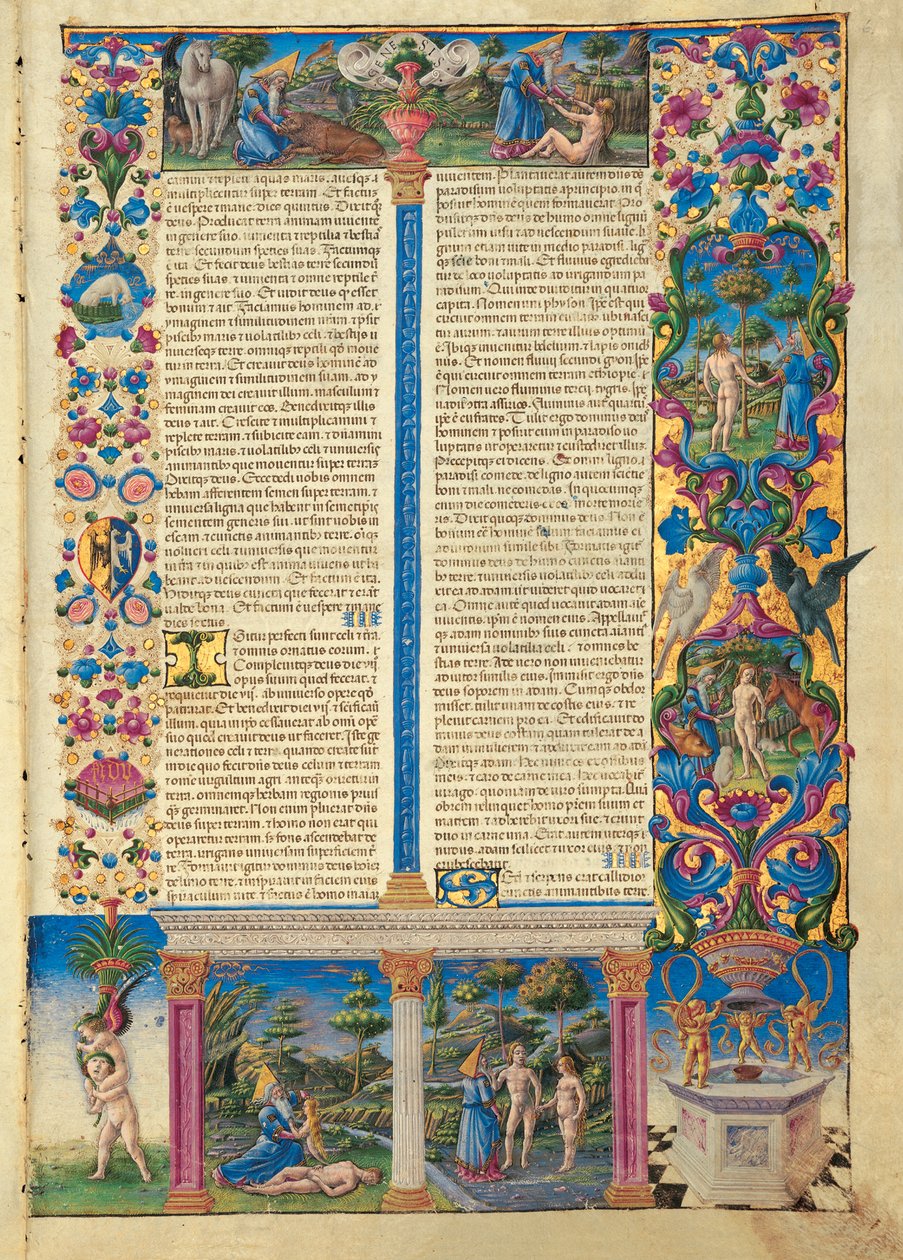 GENESIS
camini & replete aquas maris. auesq3 ɿ
multiplicentur super terram. Et factū
ē uespere & mane dies quintus. Dixit q3
deus. Producat terra animam uiuente
in genere suo. iumenta & reptilia & bestia
terre secundum species suas. Factumq3
ē ita. Et fecit deus bestias terre secundū
species suas. & iumenta & omne reptile t
re. in genere suo. Et uidit deus q̄ esset
bonum & ait. Faciamus hominem ad
ymaginem & similitudinem nr̄am. & p̄sit
piscibus maris & uolatilibus celi. & bestiis u
niuerseq3 terre. omniq3 reptili qd̄ moue
tur in terra. Et creauit deus hominē ad
ymaginem & similitudinem suam. ad y
maginem dei creauit illum. masculum &
feminam creauit eos. Benedixitq3 illis
deus & ait. Crescite & multiplicamini &
replete terram. & subicite eam. & dn̄amini
piscibus maris. & uolatilibus celi & uniuersis
animantibus que mouentur super terrā.
Dixitq3 deus. Ecce dedi uobis omnem
herbam afferentem semen super terram. &
uniuersa ligna que habent in semetipsis
sementem generis sui. ut sint uobis in
escam. & cunctis animantibus terre. oīq3
uolucri celi. & uniuersis que mouentur
in terra & in quibus est anima uiuens ut ha
beant ad uescendum. Et factum ē ita.
Viditq3 deus cuncta que fecerat & erāt
ualde bona. Et factum ē uespere & mane
dies sextus. II
Igitur perfecti sunt celi & t̄ra.
& omnis ornatus eorum.
Compleuitq3 deus die vij.
opus suum quod fecerat. &
requieuit die vij. ab uniuerso opere qd̄
patrarat. Et benedixit diei vij. & s̄cificauit
illum. quia in ip̄o cessauerat ab omī opere
suo quod creauit deus ut faceret. Iste ge
nerationes celi & terre. quando create sunt
in die quo fecit dn̄s deus celum & terram
& om̄e uirgultum agri. anteq3 oriretur in
terra. omnemq3 herbam regionis prius
q3 germinaret. Non enim pluerat dn̄s
deus super terram. & homo non erat qui
operaretur terram. S3 fons ascendebat de
terra. irrigans uniuersam superficiem t̄re
Formauit igitur dominus deus hoīem
de limo terre. & inspirauit in faciem eius
spiraculum uite. & factus ē homo in aīaz
uiuentem. Plantauerat autem dn̄s ds̄
paradisum uoluptatis a principio. in q̄
posuit hominē quem formauerat. Pro
duxitq3 dn̄s deus de humo omne lignū
pulcrum uisu & ad uescendum suaue. li
gnum etiam uite in medio paradisi. lig
q3 scie boni & mali. Et fluuius egredieba
tur de loco uoluptatis ad irrigandum pa
radisum. Qui inde diuiditur in quatuor
capita. Nomen uni physon. Ipse est qui
circuit omnem terram euilath. ubi nasci
tur aurum. & aurum terre illius optimū
ē. Ibiq3 inuenitur bdelium. & lapis onichi
nus. Et nomen fluuii secundi gyon. Ip̄e
ē qui circuit omnem terram ethiopie.
Nomen uero fluminis tercij. tygris. Ip̄e
uadit c̄tra assyrios. Fluuius aut quartus
ip̄e ē eufrates. Tulit ergo dominus deus
hominem & posuit eum in paradiso uo
luptatis ut operaretur & custodiret illuz.
Precepitq3 ei dicens. Ex omni ligno
paradisi comede. de ligno autem scientie
boni & mali. ne comedas. In quocumq3
enim die comederis ex eo. morte morie
ris. Dixit quoq3 dominus deus. Non ē
bonum eē hominē solum. faciamus ei
adiutorium simile sibi. Formatis igitur
dominus deus de humo cunctis animanti
by terre. & uniuersis uolatilibus celi. addux
it ea ad adam. ut uideret quid uocaret
ea. Omne autē quod uocauit adam aīe
uiuentis. ip̄m ē nomen eius. Appellauit
q3 adam nominibus suis cuncta aīantia
& uniuersa uolatilia celi. & omnes be
stias terre. Ade uero non inueniebatur
adiutor similis eius. Immisit ergo dn̄s
deus soporem in adam. Cumq3 obdor
misset. tulit unam de costis eius. & re
pleuit carnem pro ea. Et edificauit do
minus deus costam quam tulerat de a
dam in mulierem. & adduxit eam ad adā
Dixitq3 adam. Hoc nunc os ex ossibus
meis. & caro de carne mea. Hec uocabit̄
uirago. quoniam de uiro sumpta. Qua
obrem relinquet homo p̄rem suum et
matrem. & adherebit uxori sue. & erunt
duo in carne una. Erat autem uterq3 n
nudus. adam scilicet & uxor eius & non
erubescebant. III
Sed et serpens erat callidior
cunctis animantibus terre.